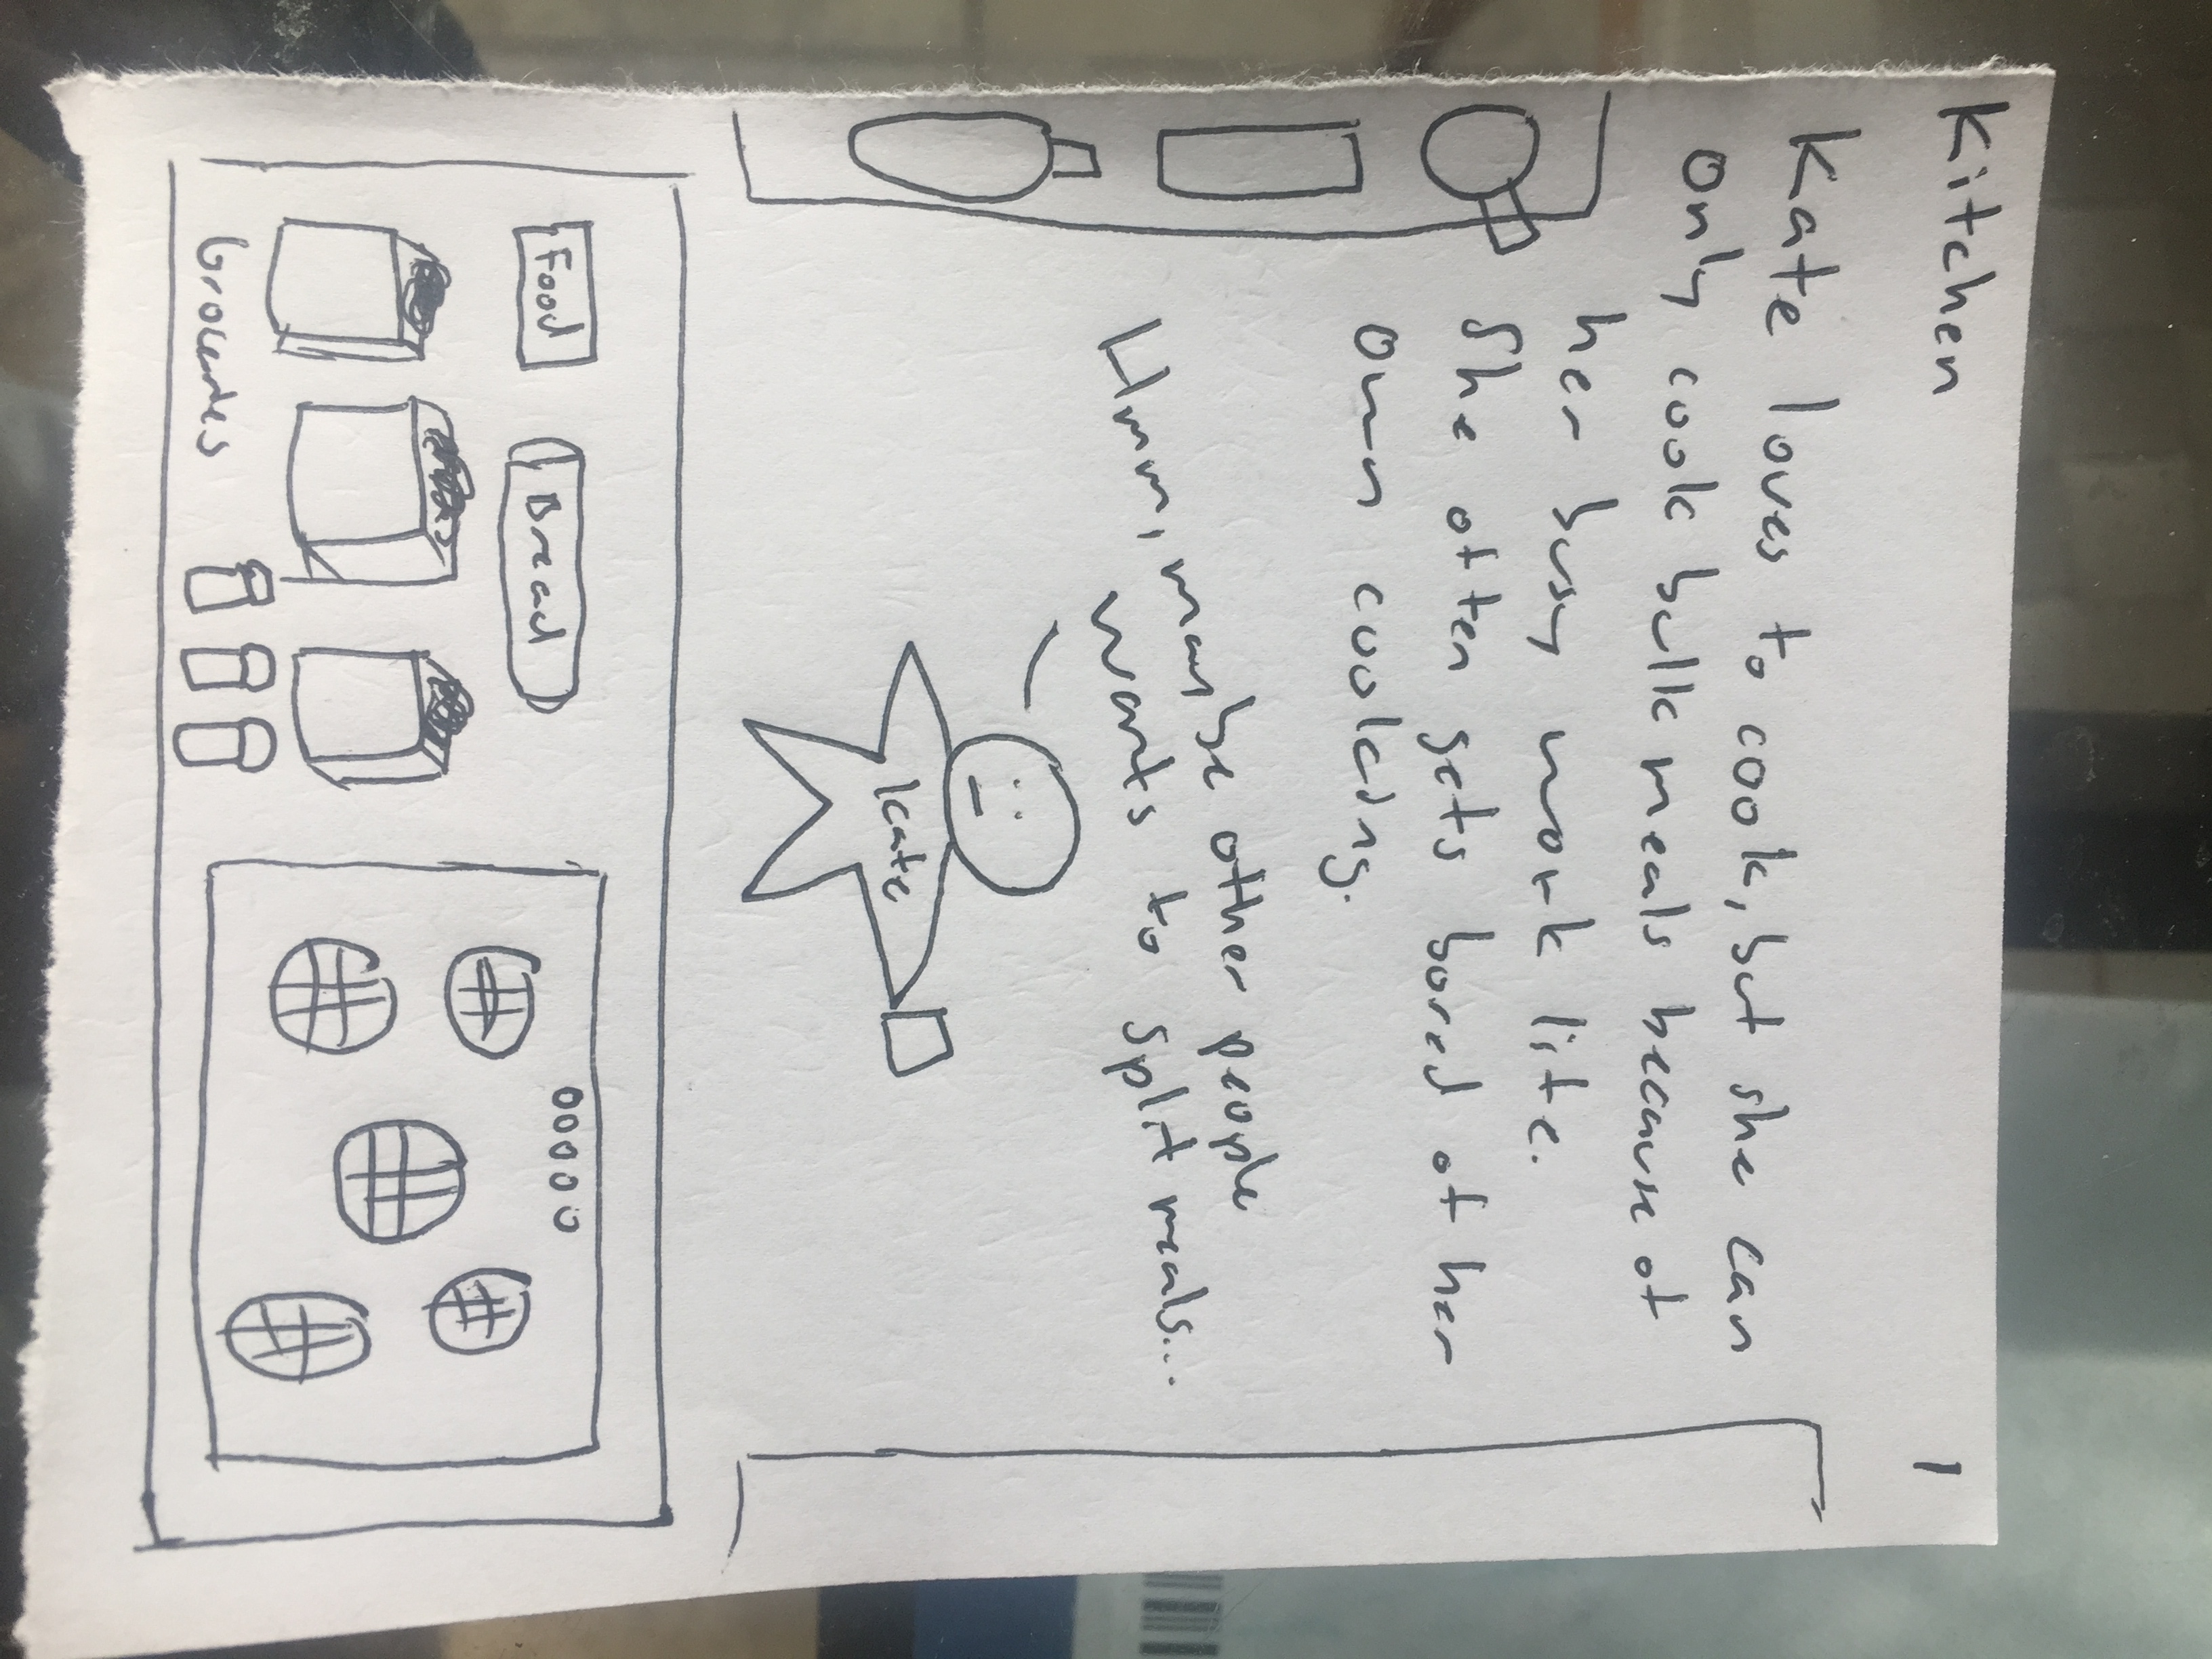 Kitchen 1
Kate loves to cook, but she can
only cook bulk meals because of
her busy work life.
She often gets bored of her
own cooking.
Hmm, maybe other people
wants to split meals...
Kate
Food
Bread
Groceries